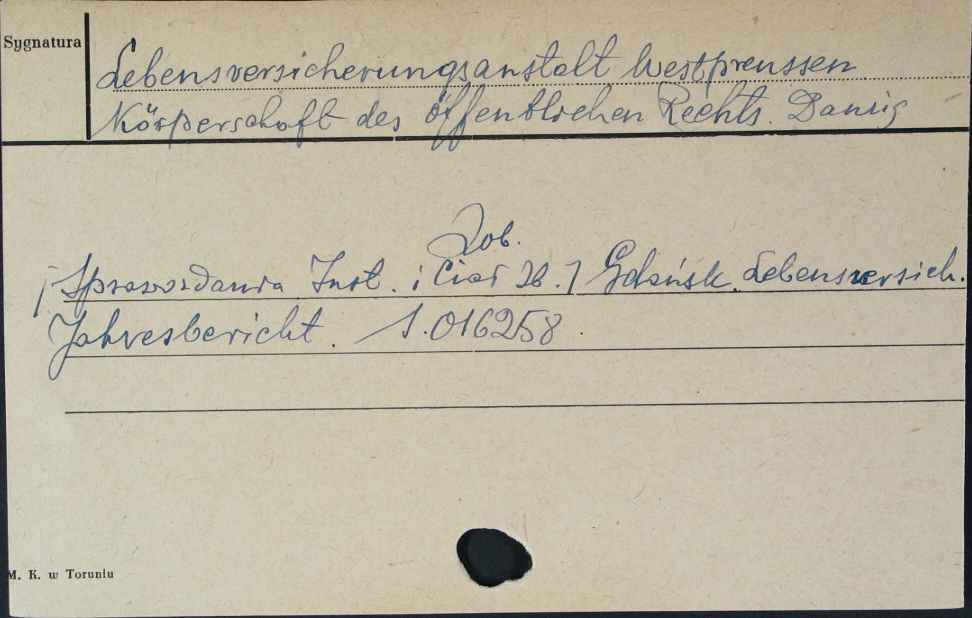 Sygnatura
Lebensversicherungsanstalt Westpreussen
Körperschaft des öffentlichen Rechts. Danzig
Zob.
[Sprawozdania Inst. i Ciał Ub.] Gdańsk. Lebensversich.
Jahresbericht. 1.016258.
M. K. w Toruniu